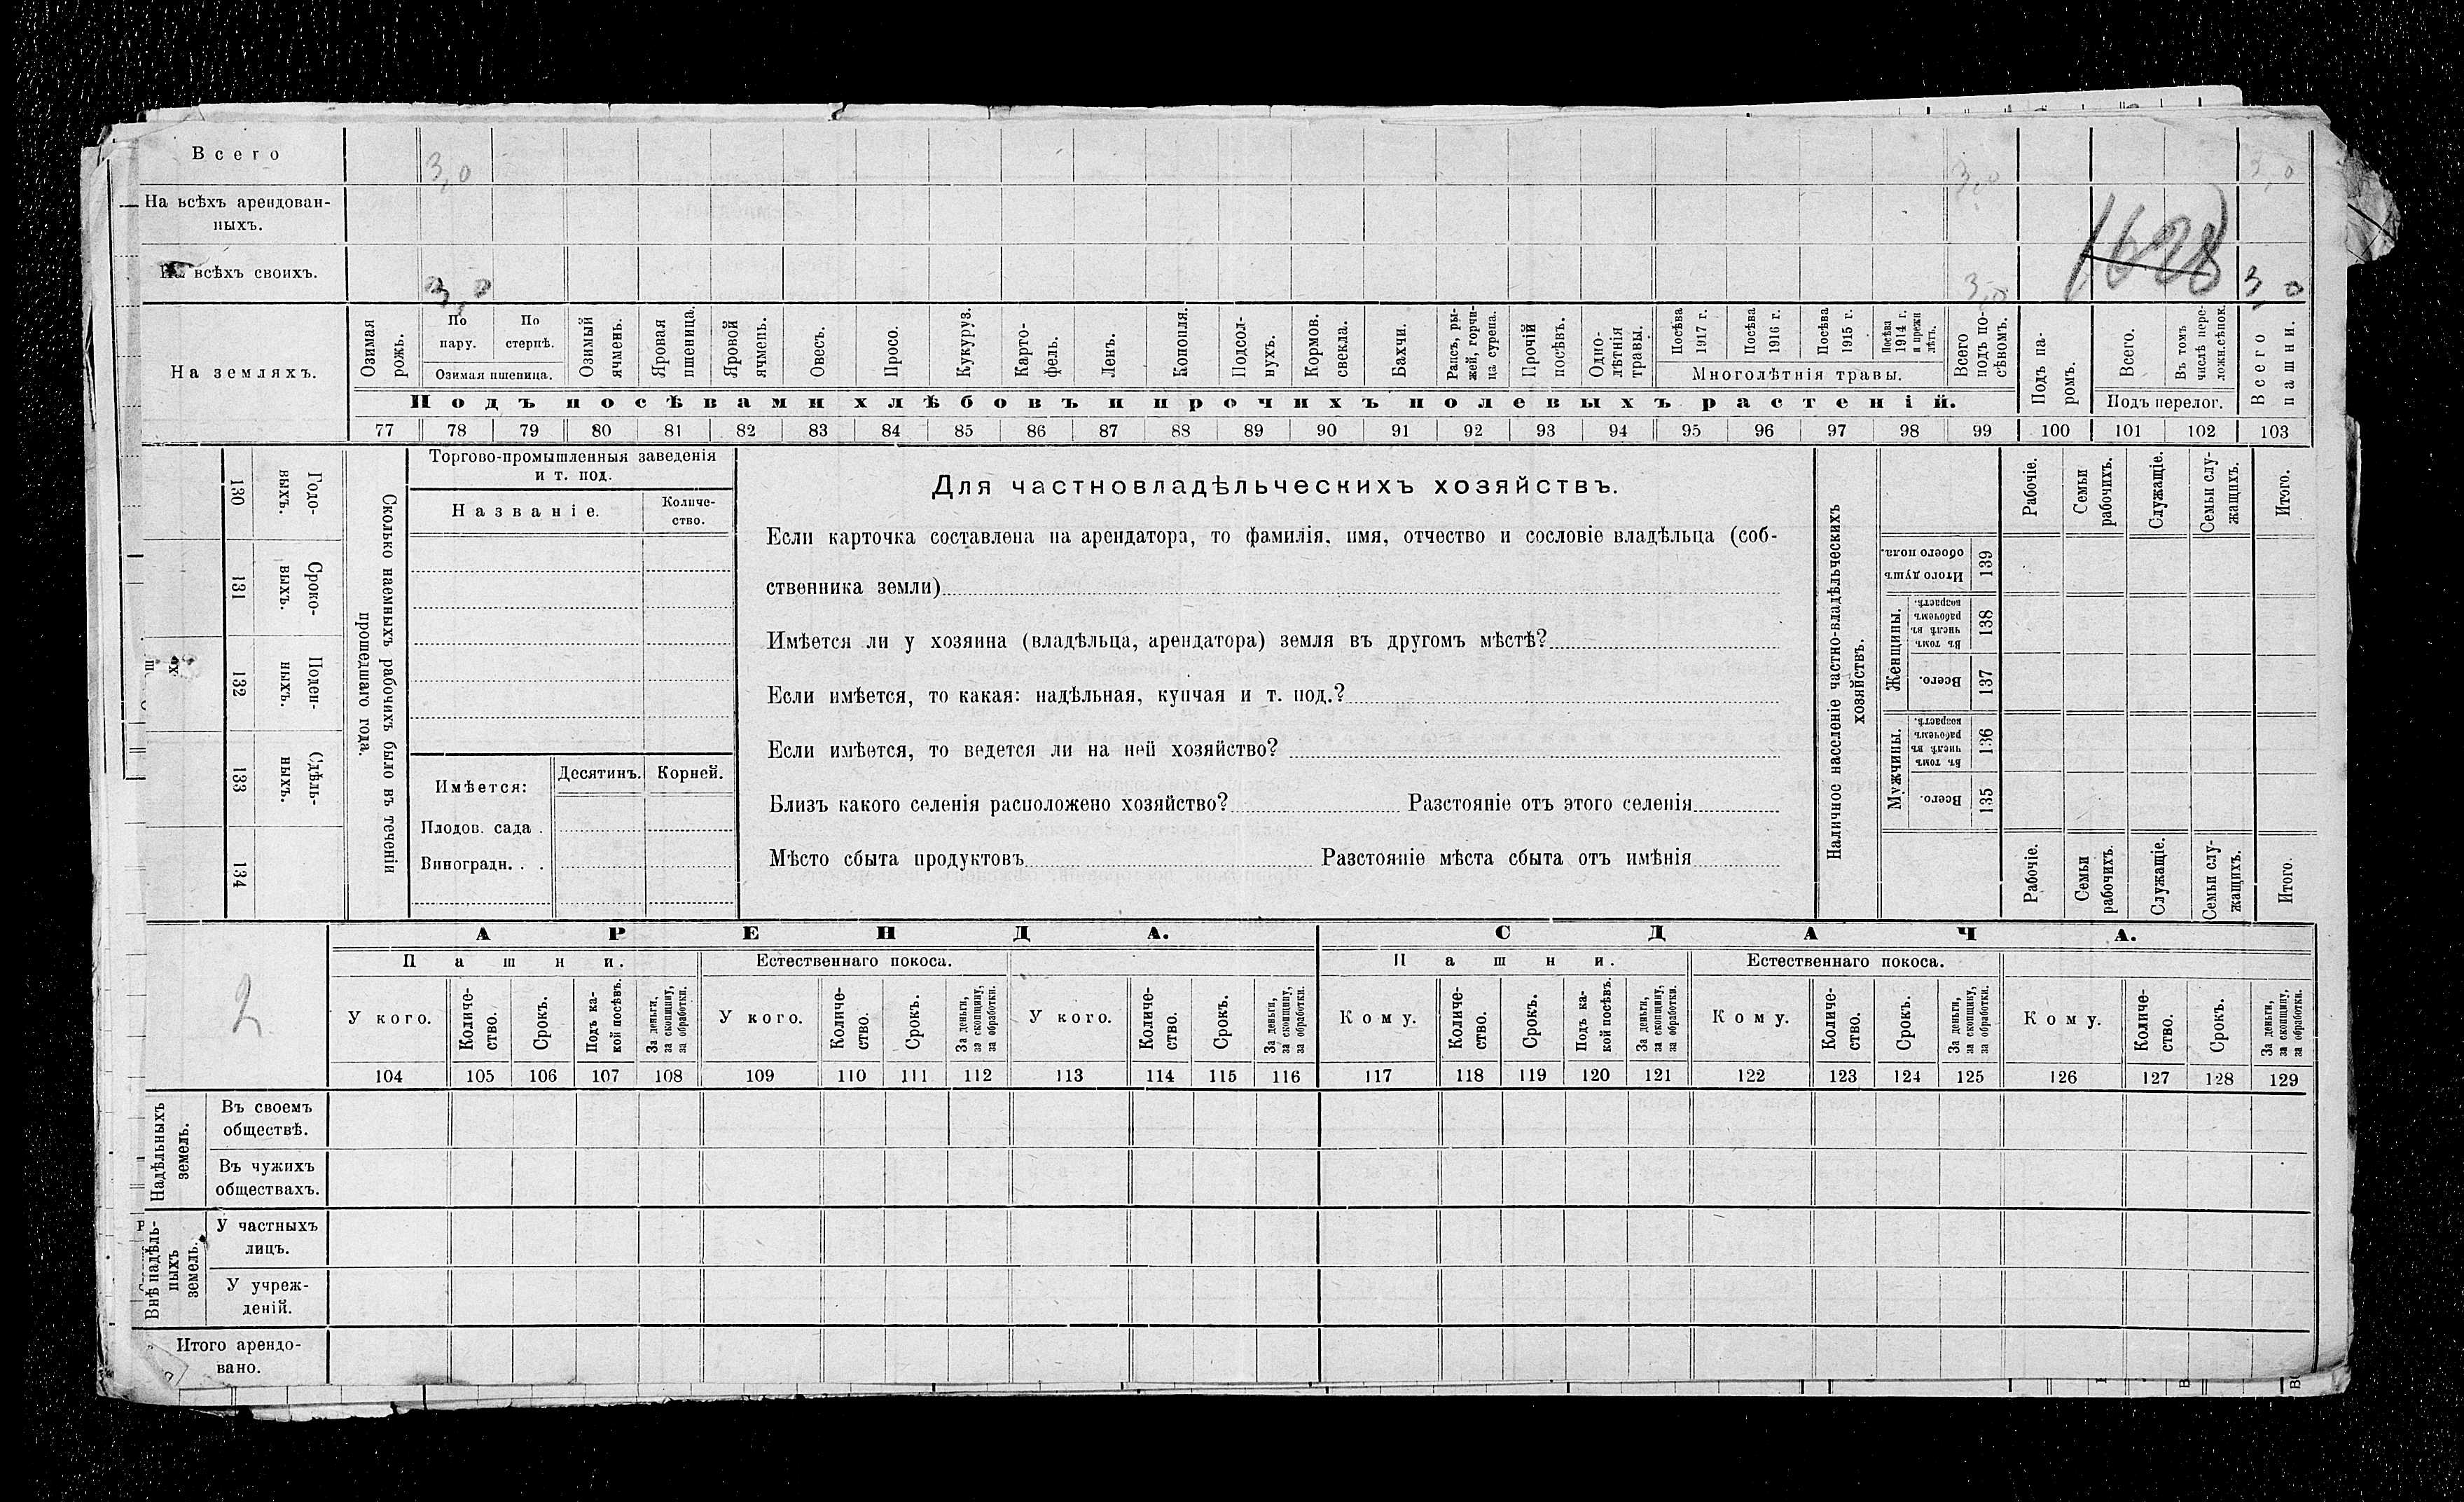 Всего 3,0 3,0 3,0
На всѣхъ арендован-
ныхъ.
На всѣхъ своихъ. 3,0 3,0 3,0
1628
На земляхъ.
Озимая рожь.
По пару.
По стернѣ.
Озимая пшеница.
Озимый ячмень.
Яровая пшеница.
Яровой ячмень.
Овесъ.
Просо.
Кукуруз.
Карто-
фель.
Ленъ.
Конопля.
Подсол-
нухъ.
Кормов. свекла.
Бахчи.
Рапсъ, ры-
жей, горчи-
ца сурепа.
Прочій посѣвъ.
Одно-
лѣтнія травы.
Посѣва 1917 г.
Посѣва 1916 г.
Посѣва 1915 г.
Посѣва 1914 г. и прежн лѣтъ.
Многолѣтнія травы.
Всего подъ по-
сѣвомъ.
Подъ посѣвами хлѣбовъ и прочихъ полевыхъ растеній.
Подъ па-
ромъ.
Всего.
Въ томъ числѣ пере-
ложн.сѣнок.
Подъ перелог.
Всего пашни.
77 78 79 80 81 82 83 84 85 86 87 88 89 90 91 92 93 94 95 96 97 98 99 100 101 102 103
130 Годо-
выхъ.
131 Сроко-
выхъ.
132 Поден-
ныхъ.
133 Сдѣль-
ныхъ.
134
Сколько наемныхъ рабочихъ было въ теченіи
прошедшаго года.
Торгово-промышленныя заведенія
и т. под.
Названіе.
Количе-
ство.
Имѣется:
Десятинъ. Корней.
Плодов. сада .
Виноградн. . .
Для частновладѣльческихъ хозяйствъ.
Если карточка составлена на арендатора, то фамилія, имя, отчество и сословіе владѣльца (соб-
ственника земли)
Имѣется ли у хозяина (владѣльца, арендатора) земля въ другомъ мѣстѣ?
Если имѣется, то какая: надѣльная, купчая и т. под.?
Если имѣется, то ведется ли на ней хозяйство?
Близъ какого селенія расположено хозяйство? Разстояніе отъ этого селенія
Мѣсто сбыта продуктовъ Разстояніе мѣста сбыта отъ имѣнія
Наличное населеніе частно-владѣльческихъ
хозяйствъ.
Рабочіе.
Семьи рабочихъ.
Служащіе.
Семьи слу-
жащихъ.
Итого.
Итого душъ обоего пола. 139
Женщины.
Въ томъ числѣ въ рабочемъ возрастѣ. 138
Всего. 137
Мужчины.
Въ томъ числѣ въ рабочемъ возрастѣ. 136
Всего. 135
Рабочіе.
Семьи рабочихъ.
Служащіе.
Семьи слу-
жащихъ.
Итого.
2
АРЕНДА. СДАЧА.
Пашни. Естественнаго покоса. Пашни. Естественнаго покоса.
У кого.
Количе-
ство.
Срокъ.
Подъ ка-
кой посѣвъ.
За деньги, за скопщину, за обработки.
У кого.
Количе-
ство.
Срокъ.
За деньги, за скопщину, за обработки.
У кого.
Количе-
ство.
Срокъ.
За деньги, за скопщину, за обработки.
Кому.
Количе-
ство.
Срокъ.
Подъ ка-
кой посѣвъ.
За деньги, за скопщину, за обработки.
Кому.
Количе-
ство.
Срокъ.
За деньги, за скопщину, за обработки.
Кому.
Количе-
ство.
Срокъ.
За деньги, за скопщину, за обработки.
104 105 106 107 108 109 110 111 112 113 114 115 116 117 118 119 120 121 122 123 124 125 126 127 128 129
Надѣльныхъ земель.
Въ своемъ
обществѣ.
Въ чужихъ
обществахъ.
Внѣ надѣль-
ныхъ земель.
У частныхъ
лицъ.
У учреж-
деній.
Итого арендо-
вано.